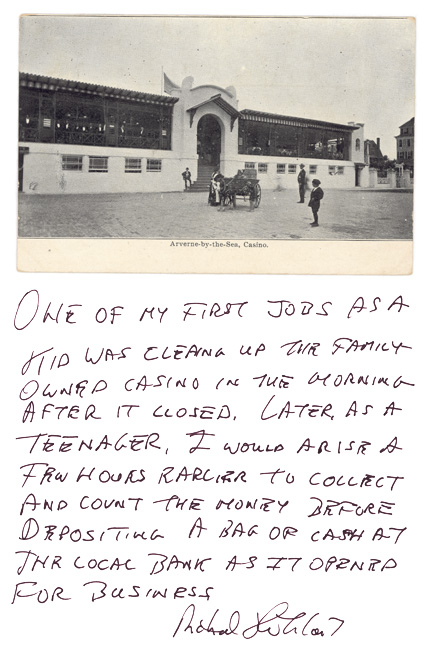 Arverne-by-the-Sea, Casino.
ONE OF MY FIRST JOBS AS A
KID WAS CLEANG UP THE FAMILY
OWNED CASINO IN THE MORNING
AFTER IT CLOSED. LATER, AS A
TEENAGER, I WOULD ARISE A
FEW HOURS EARLIER TO COLLECT
AND COUNT THE MONEY BEFORE
DEPOSITING A BAG OF CASH AT
THE LOCAL BANK AS IT OPENED
FOR BUSINESS
Richard